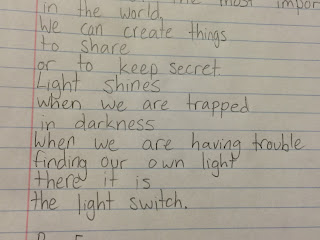 the most impor
in the world,
We can create things
to share
or to keep secret
Light shines
when we are trapped
in darkness
When we are having trouble
finding our own light
there it is
the light switch.